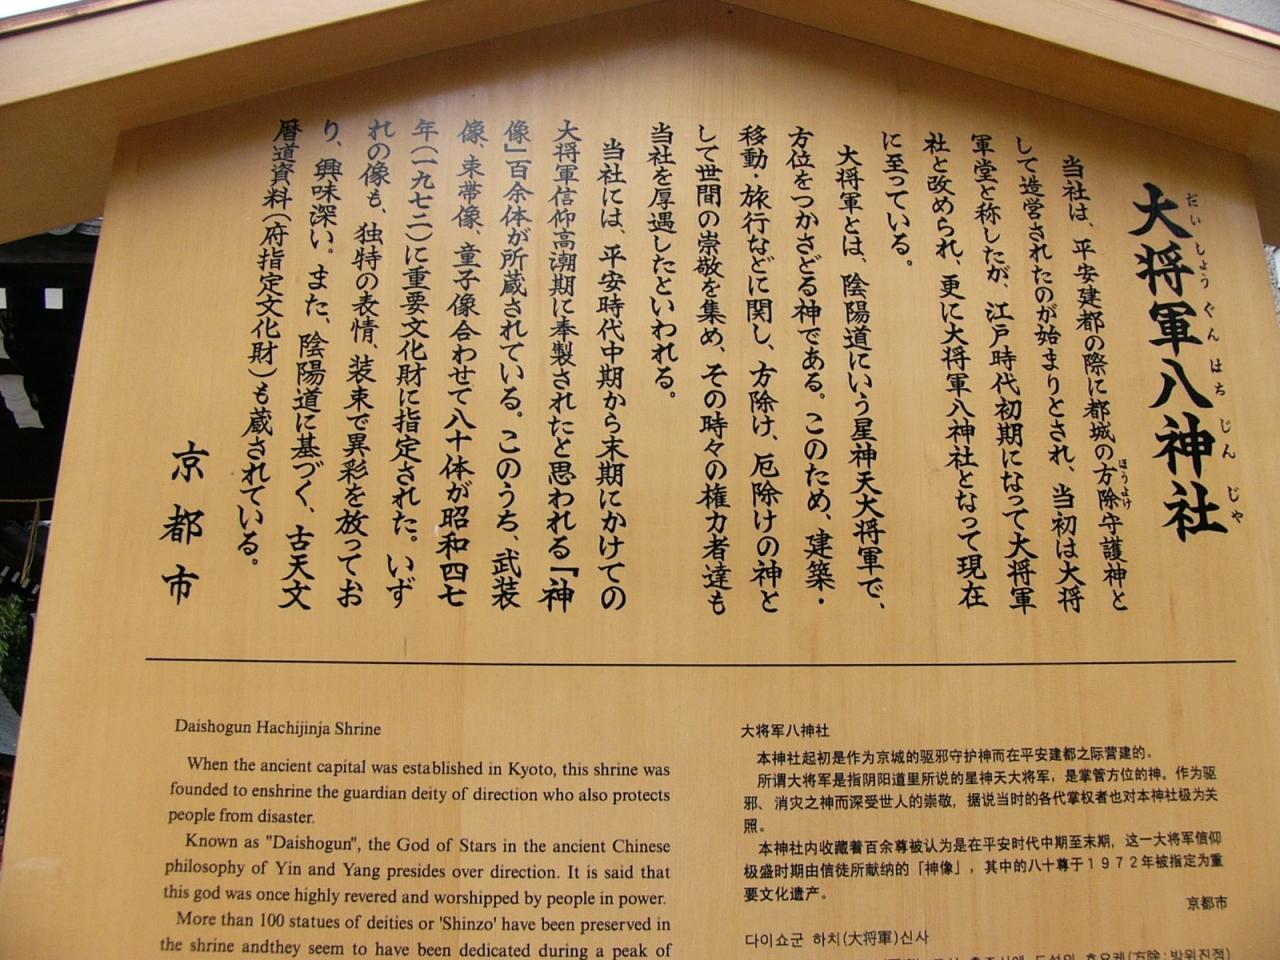 大将軍八神社
だいしょうぐんはちじんじゃ
当社は、平安建都の際に都城の方除守護神と
ほうよけ
して造営されたのが始まりとされ、当初は大将
軍堂と称したが、江戸時代初期になって大将軍
社と改められ、更に大将軍八神社となって現在
に至っている。
大将軍とは、陰陽道にいう星神天大将軍で、
方位をつかさどる神である。このため、建築・
移動・旅行などに関し、方除け、厄除けの神と
して世間の崇敬を集め、その時々の権力者達も
当社を厚遇したといわれる。
当社には、平安時代中期から末期にかけての
大将軍信仰高潮期に奉製されたと思われる「神
像」百余体が所蔵されている。このうち、武装
像、束帯像、童子像合わせて八十体が昭和四七
年(一九七二)に重要文化財に指定された。いず
れの像も、独特の表情、装束で異彩を放ってお
り、興味深い。また、陰陽道に基づく、古天文
暦道資料(府指定文化財)も蔵されている。
京都市
Daishogun Hachijinja Shrine
When the ancient capital was established in Kyoto, this shrine was
founded to enshrine the guardian deity of direction who also protects
people from disaster.
Known as "Daishogun", the God of Stars in the ancient Chinese
philosophy of Yin and Yang presides over direction. It is said that
this god was once highly revered and worshipped by people in power.
More than 100 statues of deities or 'Shinzo' have been preserved in
the shrine andthey seem to have been dedicated during a peak of
大将军八神社
本神社起初是作为京城的驱邪守护神而在平安建都之际营建的。
所谓大将军是指阴阳道里所说的星神天大将军，是掌管方位的神。作为驱
邪、消灾之神而深受世人的崇敬，据说当时的各代掌权者也对本神社极为关
照。
本神社内收藏着百余尊被认为是在平安时代中期至末期，这一大将军信仰
极盛时期由信徒所献纳的「神像」，其中的八十尊于1972年被指定为重
要文化遗产。
京都市
다이쇼군 하치(大将軍)신사